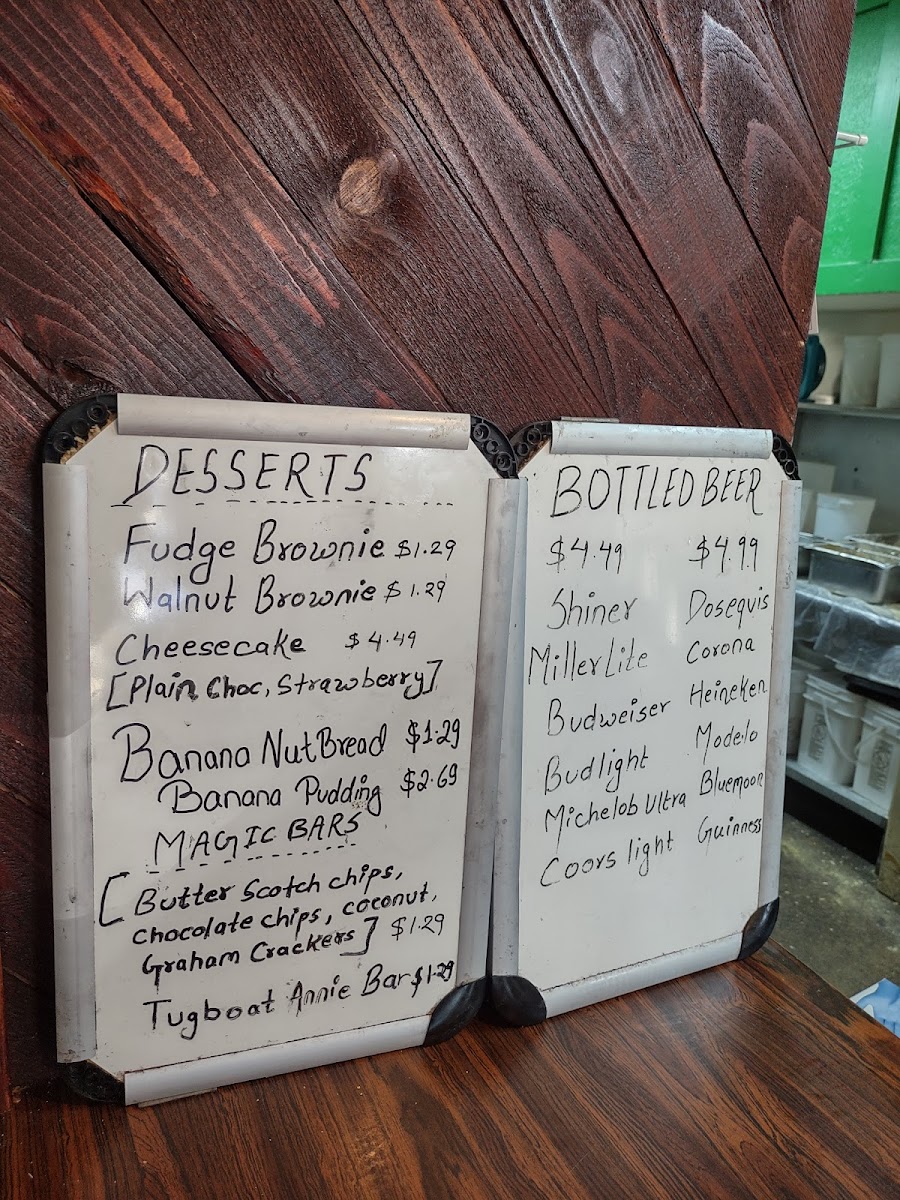 DESSERTS
Fudge Brownie $1.29
Walnut Brownie $1.29
Cheesecake $4.49
[Plain Choc, Strawberry]
Banana Nut Bread $1.29
Banana Pudding $2.69
MAGIC BARS
[Butter Scotch chips,
chocolate chips, coconut,
Graham Crackers] $1.29
Tugboat Annie Bar $1.29
BOTTLED BEER
$4.49 $4.99
Shiner Dosequis
Miller Lite Corona
Budweiser Heineken
Budlight Modelo
Michelob Ultra Bluemoon
Coors light Guinness